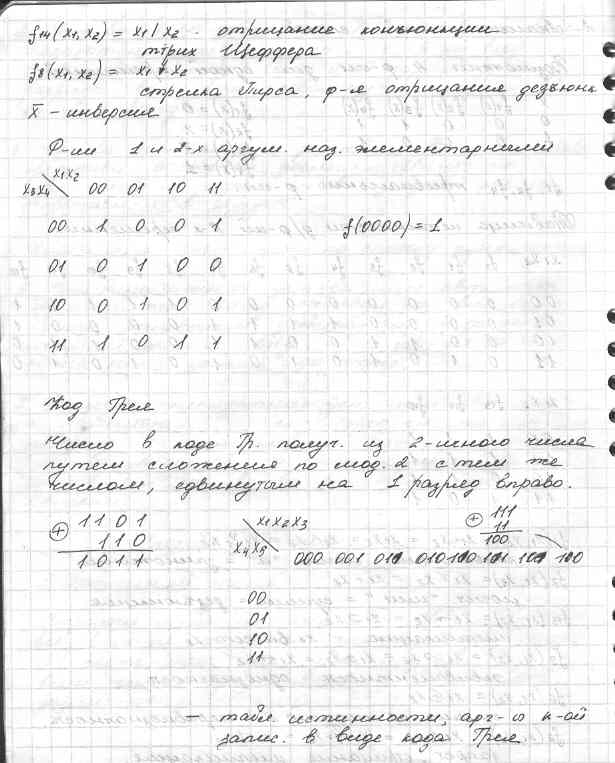 f14(x1, x2) = x1 / x2 . отрицание конъюнкции
штрих Шеффера
f8(x1, x2) = x1 ↓ x2
стрелка Пирса, ф-я отрицания дезъюнк
x̄ – инверсия
Ф-ии 1 и 2-х аргум. наз. элементарными
x1x2
x3x4 00 01 10 11
00 1 0 0 1 f(0000) = 1
01 0 1 0 0
10 0 1 0 1
11 1 0 1 1
Код Грея
Число в коде Гр. получ. из 2-ичного числа
путем сложения по мод. 2 с тем же
числом, сдвинутым на 1 разряд вправо.
⊕ 1101 x1x2x3 ⊕ 111
110 x4x5 11
1011 100
000 001 011 010 110 111 101 100
00
01
10
11
– табл. истинности, арг-ы к-ой
запис. в виде кода Грея